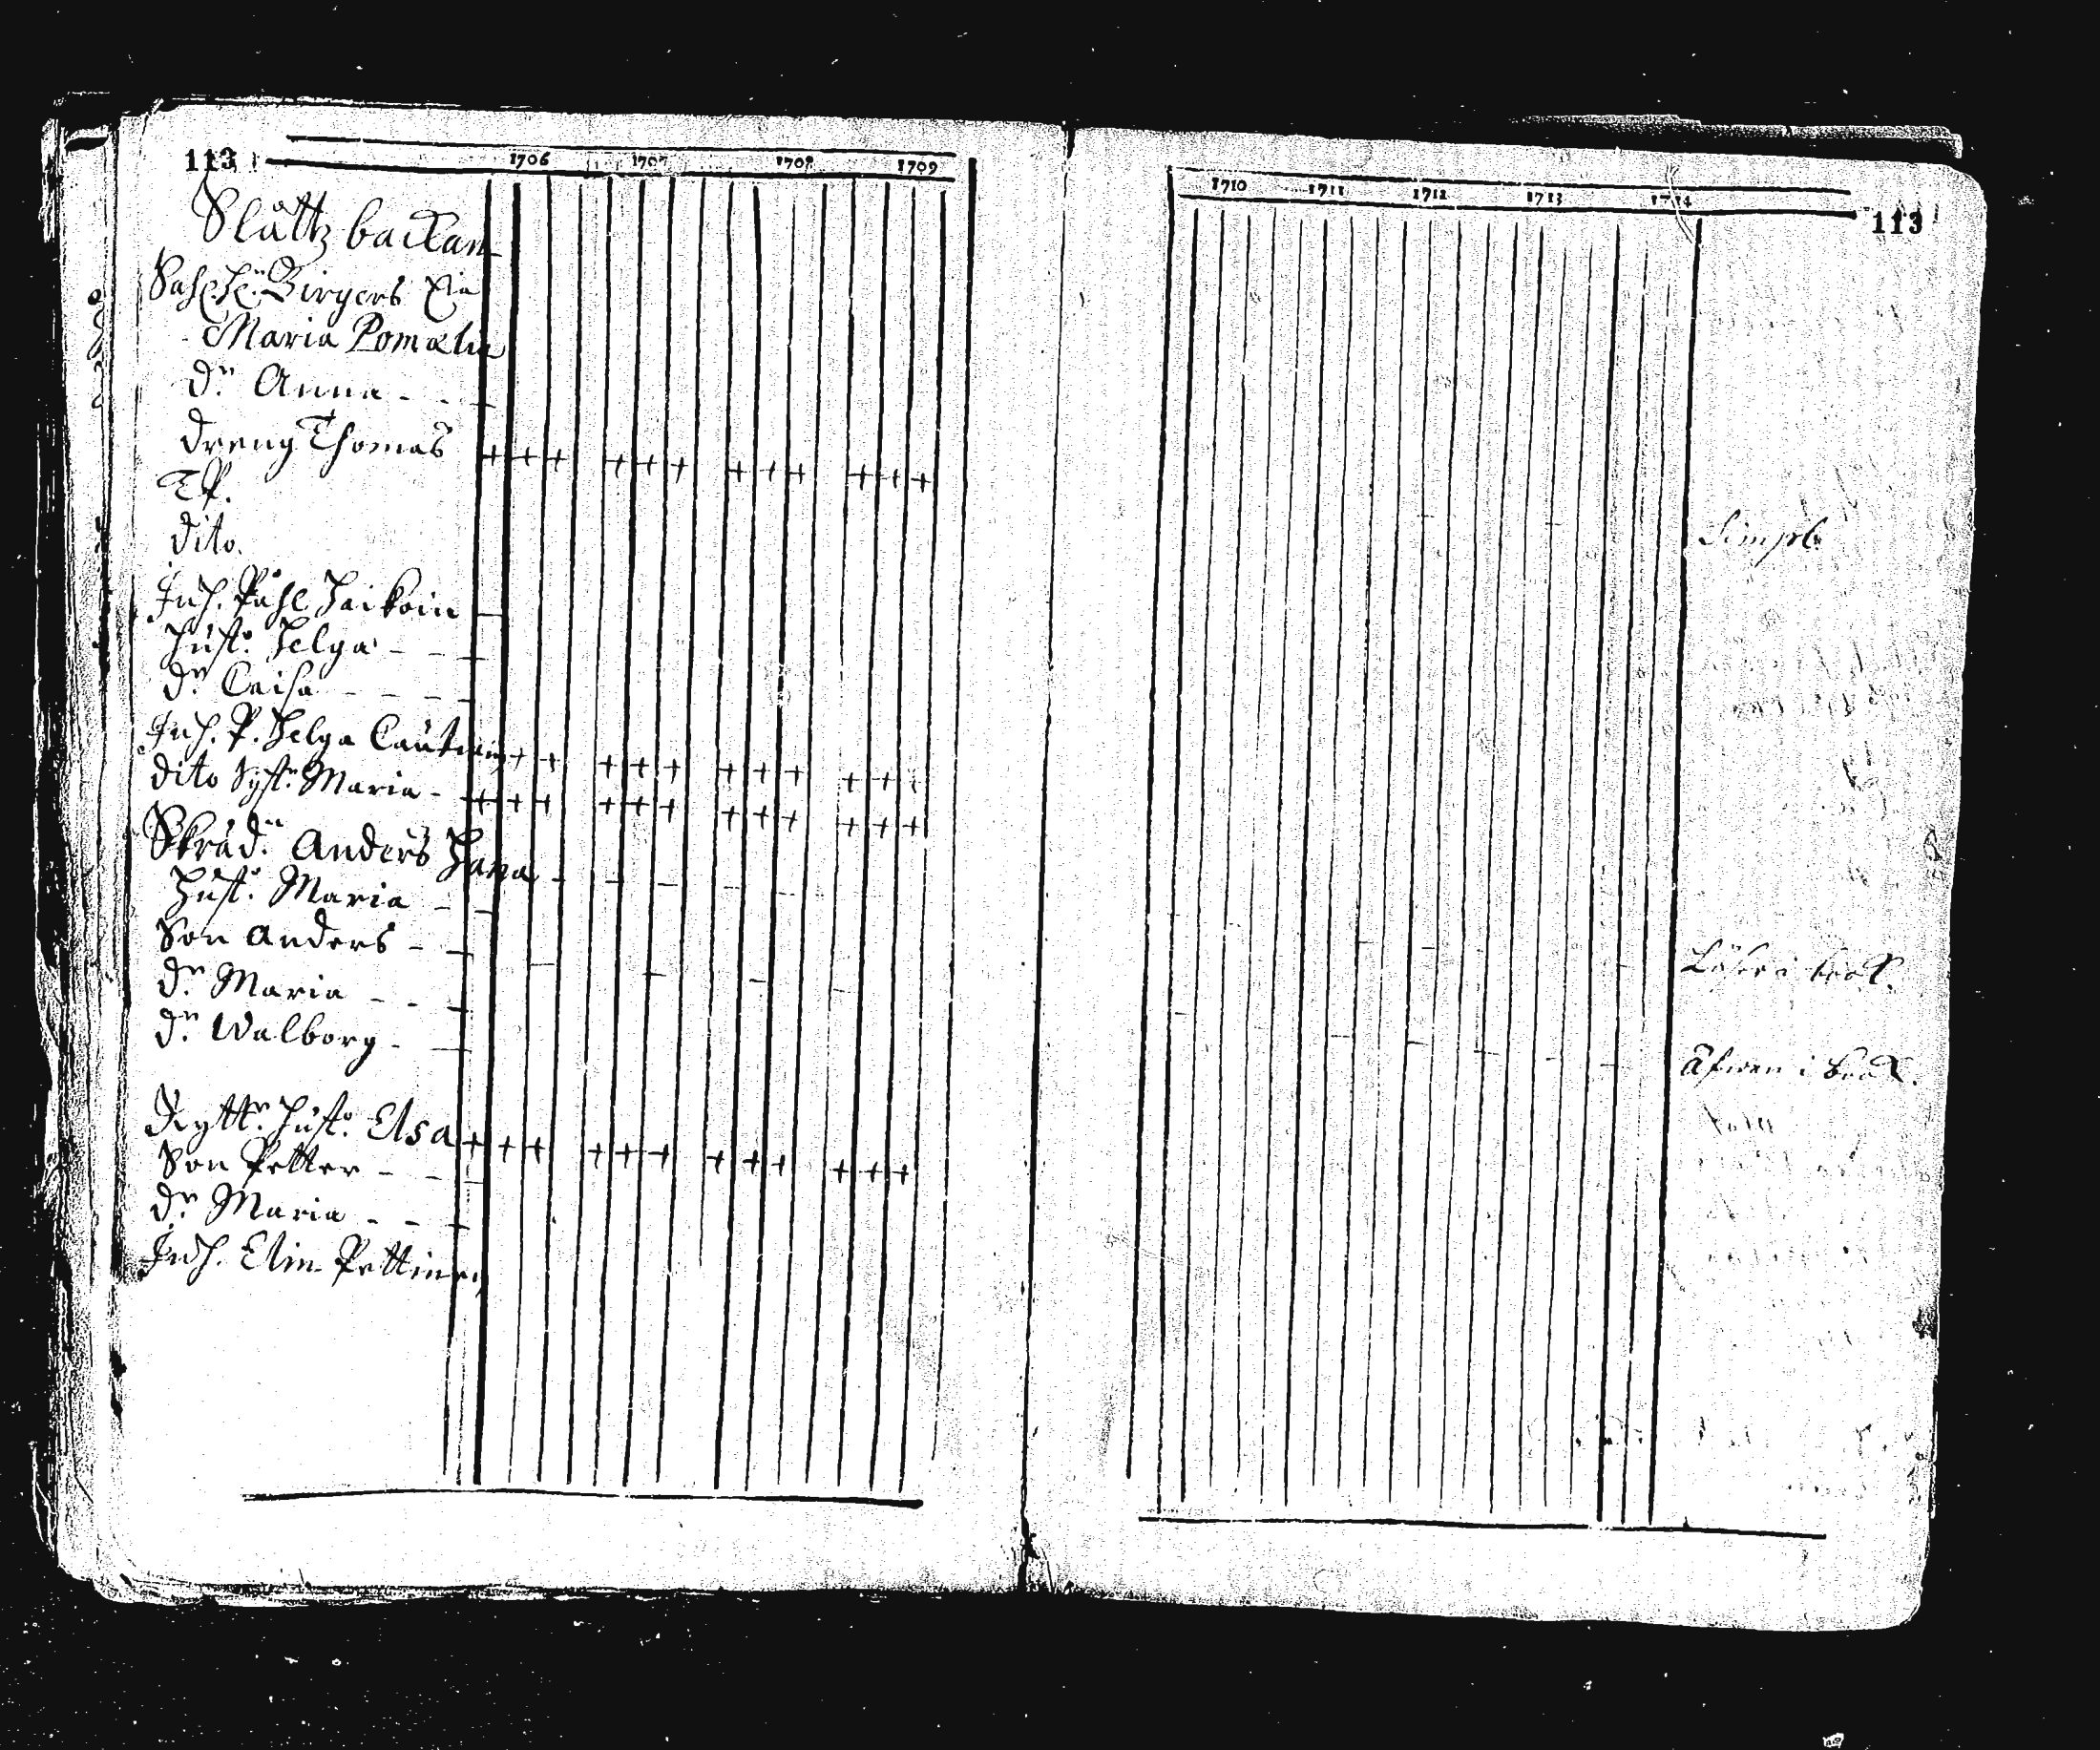 113 1706 1707 1708 1709
Slåttz backan
Sal. H. Birgers Enk
Maria Pomælia
dr. Anna - - -
dreng Thomas + + + + + + + + + + + +
T. P.
dito.
Inh. Påhl Haikoin
Hust. Helga - - -
dr. Caisa - - - -
Inh. P. Helga + + + + + + + + + + +
dito Syst. Maria - + + + + + + + + + + + +
Skräd. Anders Hana
Hust. Maria - -
Son Anders - -
dr. Maria - - -
dr. Walborg - -
Rytt. Hust. Elsa + + + + + + + + + + + +
Son Petter - - -
dr. Maria - - -
Inh. Elin
1710 1711 1712 1713 1714 113
Simpl.
Läser i book.
Äfwen i book.